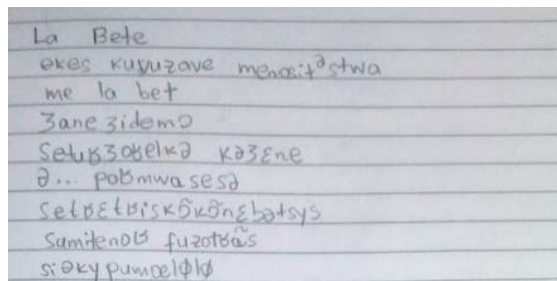 La Bete
ekes kuvuzave menasit^ə stwa
me la bet
ʒane ʒidemɔ
setuʁʒoʁelkə kəʒɛne
ə... poʁmwasesə
setʁɛtʁiskɔ̃kɔ̃nɛbətsys
sumitenoʁ fuzotʁɑ̃s
siəky pumoelɸlɸ